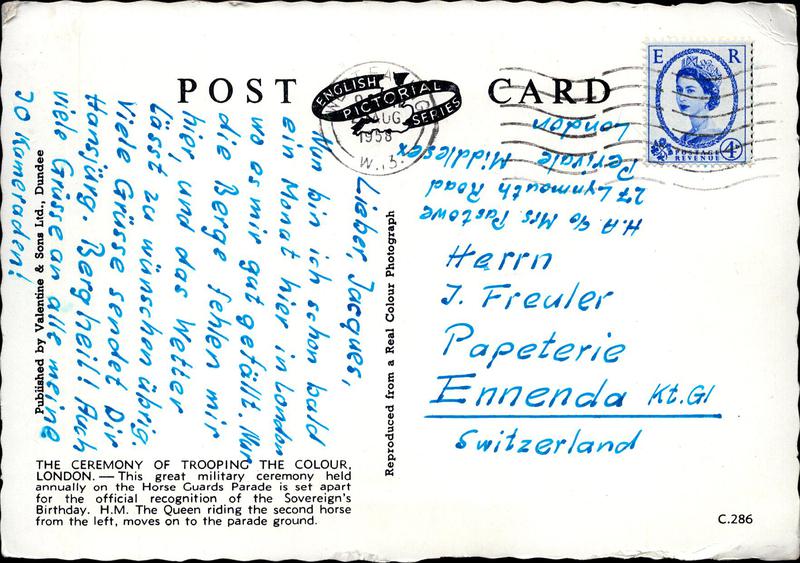 POST CARD
ENGLISH
PICTORIAL
SERIES
AUG
1958
W.5.
E R
POSTAGE
REVENUE
4D
H.A c/o Mrs Pastowe
27 Lynmouth Road
Perivale Middlesex
London
Herrn
J. Freuler
Papeterie
Ennenda Kt. Gl
Switzerland
Lieber, Jacques,
Nun bin ich schon bald
ein Monat hier in London
wo es mir gut gefällt. Nur
die Berge fehlen mir
hier, und das Wetter
lässt zu wünschen übrig.
Viele Grüsse sendet Dir
Hansjürg. Bergheil! Auch
viele Grüsse an alle meine
JO Kameraden!
Published by Valentine & Sons Ltd., Dundee
Reproduced from a Real Colour Photograph
THE CEREMONY OF TROOPING THE COLOUR,
LONDON. — This great military ceremony held
annually on the Horse Guards Parade is set apart
for the official recognition of the Sovereign's
Birthday. H.M. The Queen riding the second horse
from the left, moves on to the parade ground.
C.286